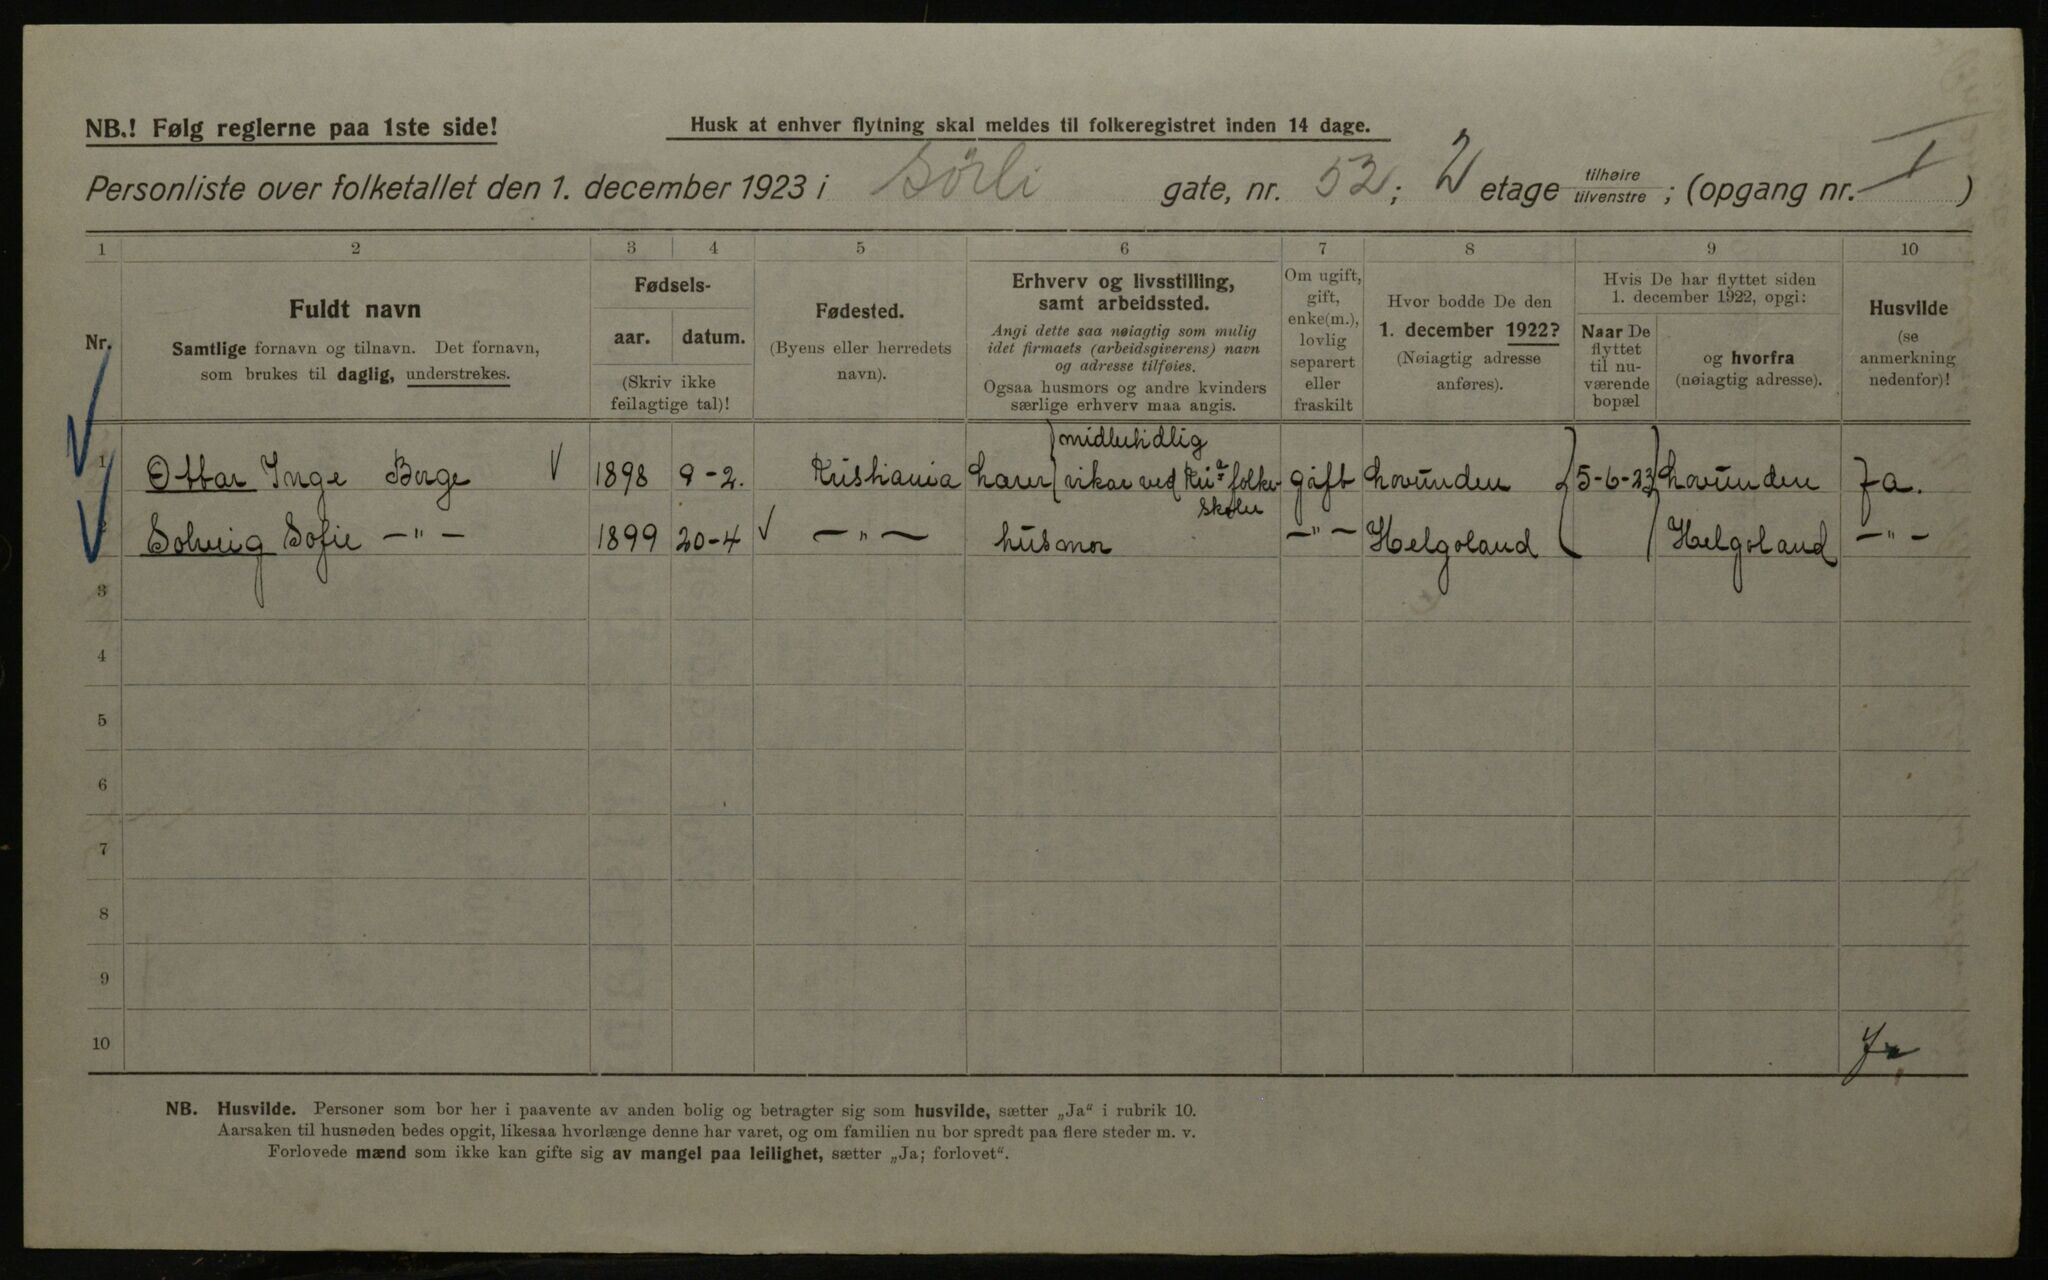 NB.! Følg reglerne paa 1ste side!
Husk at enhver flytning skal meldes til folkeregistret inden 14 dage.
Personliste over folketallet den 1. december 1923 i Sörli gate, nr. 52; 2 etage tilhøire tilvenstre; (opgang nr. I)
1 2 3 4 5 6 7 8 9 10
Nr.
Fuldt navn
Samtlige fornavn og tilnavn. Det fornavn,
som brukes til daglig, understrekes.
Fødsels-
aar. datum.
(Skriv ikke
feilagtige tal)!
Fødested.
(Byens eller herredets
navn).
Erhverv og livsstilling,
samt arbeidssted.
Angi dette saa nøiagtig som mulig
idet firmaets (arbeidsgiverens) navn
og adresse tilføies.
Ogsaa husmors og andre kvinders
særlige erhverv maa angis.
Om ugift,
gift,
enke(m.),
lovlig
separert
eller
fraskilt
Hvor bodde De den
1. december 1922?
(Nøiagtig adresse
anføres).
Hvis De har flyttet siden
1. december 1922, opgi:
Naar De
flyttet
til nu-
værende
bopæl
og hvorfra
(nøiagtig adresse).
Husvilde
(se
anmerkning
nedenfor)!
midlertidlig
1 Ottar Inge Berge 1898 9-2. Kristiania Lærer vikar ved Kri.a folke- gift Lovunden 5-6-23 Lovunden Ja.
skoler
2 Solveig Sofie -"- 1899 20-4 -"- husmor -"- Helgoland Helgoland -"-
3
4
5
6
7
8
9
10 Ja
NB. Husvilde. Personer som bor her i paavente av anden bolig og betragter sig som husvilde, sætter „Ja“ i rubrik 10.
Aarsaken til husnøden bedes opgit, likesaa hvorlænge denne har varet, og om familien nu bor spredt paa flere steder m. v.
Forlovede mænd som ikke kan gifte sig av mangel paa leilighet, sætter „Ja; forlovet“.